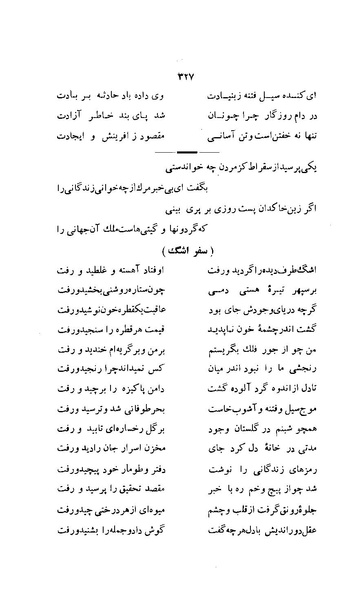 ۳۲۷
ای کننده سیل فتنه ز بنیادت وی داده باد حادثه بر بادت
در دام روزگار چرا چونان شد پای بند خاطر آزادت
تنها نه خفتن است و تن آسانی مقصود ز آفرینش و ایجادت
یکی پرسید از سقراط کز مردن چه خواندستی
بگفت ای بی خبر مرگ از چه خوانی زندگانی را
اگر زین خاکدان پست روزی بر پری بینی
که گردونها و گیتی هاست ملک آن جهانی را
( سفر اشگ )
اشگ طرف دیده را گردید و رفت اوفتاد آهسته و غلطید و رفت
بر سپهر تیرهٔ هستی دمی چون ستاره روشنی بخشید و رفت
گرچه دریای وجودش جای بود عاقبت یکقطره خون نوشید و رفت
گشت اندر چشمهٔ خون ناپدید قیمت هر قطره را سنجید و رفت
من چو از جور فلک بگریستم بر من و بر گریه ام خندید و رفت
رنجشی ما را نبود اندر میان کس نمیداند چرا رنجید و رفت
تا دل از اندوه گرد آلود گشت دامن پاکیزه را برچید و رفت
موج سیل و فتنه و آشوب خاست بحر طوفانی شد و ترسید و رفت
همچو شبنم در گلستان وجود بر گل رخساره ای تابید و رفت
مدتی در خانهٔ دل کرد جای مخزن اسرار جان را دید و رفت
رمزهای زندگانی را نوشت دفتر و طومار خود پیچید و رفت
شد چو از پیچ و خم ره با خبر مقصد تحقیق را پرسید و رفت
جلوه و رونق گرفت از قلب و چشم میوه ای از هر درختی چید و رفت
عقل دور اندیش با دل هر چه گفت گوش داد و جمله را بشنید و رفت